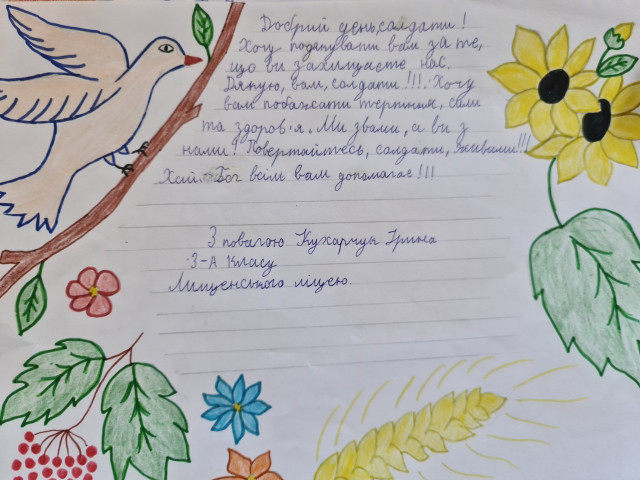 Добрий день, солдати!
Хочу подякувати вам за те,
що ви захищаєте нас.
Дякую, вам, солдати!!! Хочу
вам побажати терпіння, сили
та здоров'я. Ми з вами, а ви з
нами! Повертайтесь, солдати, живими!!!
Хай Бог всім вам допомагає!!!
З повагою Кухарчук Ірина
3-А класу
Лищенського ліцею.